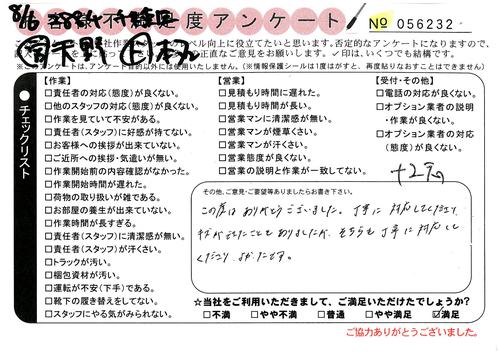 8/6
不 度アンケート
No 056232
社作業 ベル向上に役立てたいと思います。否定的なアンケートになりますので、
正直なご意見をお願いします。✓印は、いくつでも結構です。
※このアンケートは、アンケート目的以外には使用いたしません。(※情報保護シールは1度はがすと、再度貼りなおすことはできません)
●チェックリスト
【作業】
□責任者の対応(態度)が良くない。
□他のスタッフの対応(態度)が良くない。
□作業を見ていて不安がある。
□責任者(スタッフ)に好感が持てない。
□お客様への挨拶が出来ていない。
□ご近所への挨拶・気遣いが無い。
□作業開始前の内容確認がなかった。
□作業開始時間が遅れた。
□荷物の取り扱いが雑である。
□お部屋の養生が出来ていない。
□作業時間が長すぎる。
□責任者(スタッフ)に清潔感が無い。
□責任者(スタッフ)が汗くさい。
□トラックが汚い。
□梱包資材が汚い。
□運転が不安(下手)である。
□靴下の履き替えをしてない。
□スタッフにやる気がみられない。
【営業】
□見積もり時間に遅れた。
□見積もり時間が長い。
□営業マンに清潔感が無い。
□営業マンが煙草くさい。
□営業マンが汗くさい。
□営業態度が良くない。
□営業の説明と作業が一致してない。
【受付・その他】
□電話の対応が良くない。
□オプション業者の説明
・作業が良くない。
□オプション業者の対応
(態度)が良くない。
+2
その他、ご意見・ご要望等ありましたらお書き下さい。
この度はありがとうございました。丁寧に対応してくださり
したこともありましたが、そちらも丁寧に対応して
くださり よかったです。
☆当社をご利用いただきまして、ご満足いただけたでしょうか?
□不満 □やや不満 □普通 □やや満足 ☑満足
ご協力ありがとうございました。